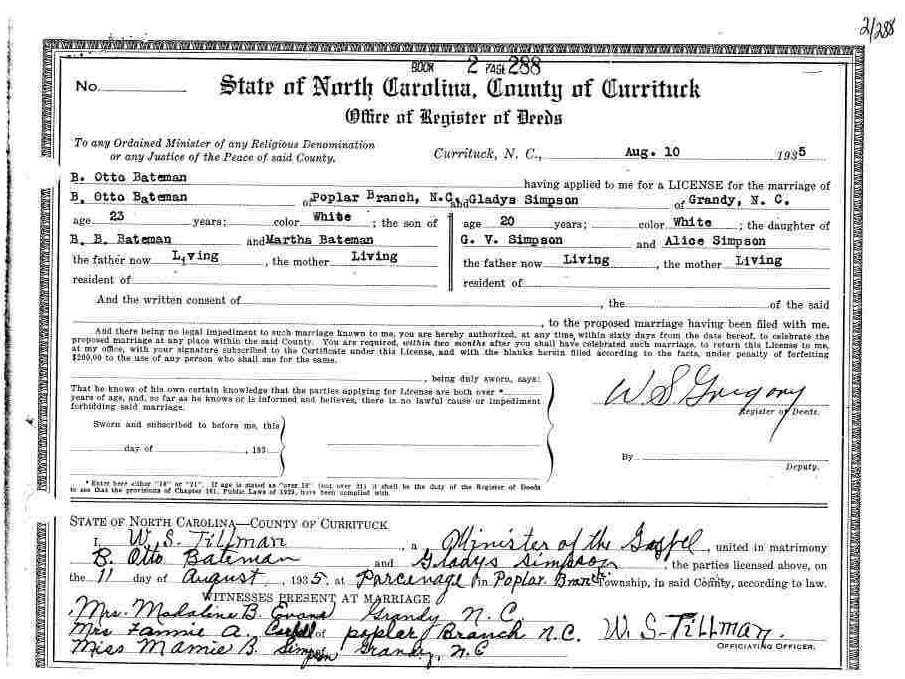 2/288
BOOK 2 PAGE 288
No.
State of North Carolina, County of Currituck
Office of Register of Deeds
To any Ordained Minister of any Religious Denomination
or any Justice of the Peace of said County.
Currituck, N. C., Aug. 10 1935
B. Otto Bateman having applied to me for a LICENSE for the marriage of
B. Otto Bateman of Poplar Branch, N.C. and Gladys Simpson of Grandy, N. C.
age 23 years; color White; the son of age 20 years; color White; the daughter of
B. B. Bateman and Martha Bateman G. V. Simpson and Alice Simpson
the father now Living, the mother Living the father now Living, the mother Living
resident of resident of
And the written consent of , the of the said
, to the proposed marriage having been filed with me.
And there being no legal impediment to such marriage known to me, you are hereby authorized, at any time, within sixty days from the date hereof, to celebrate the
proposed marriage at any place within the said County. You are required, within two months after you shall have celebrated such marriage, to return this License to me,
at my office, with your signature subscribed to the Certificate under this License, and with the blanks herein filled according to the facts, under penalty of forfeiting
$200.00 to the use of any person who shall sue for the same.
, being duly sworn, says:
That he knows of his own certain knowledge that the parties applying for License are both over *
years of age, and, so far as he knows or is informed and believes, there is no lawful cause or impediment
forbidding said marriage.
W. S. Gregory
Register of Deeds.
Sworn and subscribed to before me, this
day of , 193
By
Deputy.
* Enter here either "18" or "21". If age is stated as "over 18" (not over 21) it shall be the duty of the Register of Deeds
to see that the provisions of Chapter 101, Public Laws of 1929, have been complied with.
STATE OF NORTH CAROLINA—COUNTY OF CURRITUCK
I, W. S. Tillman, a Minister of the Gospel, united in matrimony
B. Otto Bateman and Gladys Simpson, the parties licensed above, on
the 11 day of August, 1935, at Parcenage in Poplar Branch Township, in said County, according to law.
WITNESSES PRESENT AT MARRIAGE
Mrs. Madaline B. Evans Grandy N. C
Mrs Fannie A. of popler Branch N.C.
Miss Mamie B. Simpson Grandy, N.C
W. S. Tillman.
OFFICIATING OFFICER.